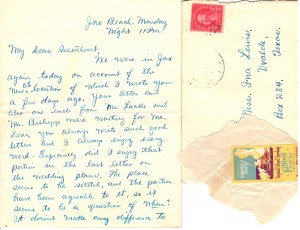 Jax Beach. Monday
Night 11 P.M.
My Dear Sweetheart,
We were in Jax
again today on account of the
location of which I wrote you
a few days ago. Your letter and
also one each from Mr. and
Mr. were waiting for me.
Dear you always write such good
letters and I always enjoy every
word. Especially did I enjoy that
portion in the last letter on
the wedding plans. The place
seems to be settled, and the parties
have been agreeable to it, so it
seems to be a question of When?
It doesn't make any difference to
Miss Ima Lewis,
Uvalde,
Texas.
Box 284,